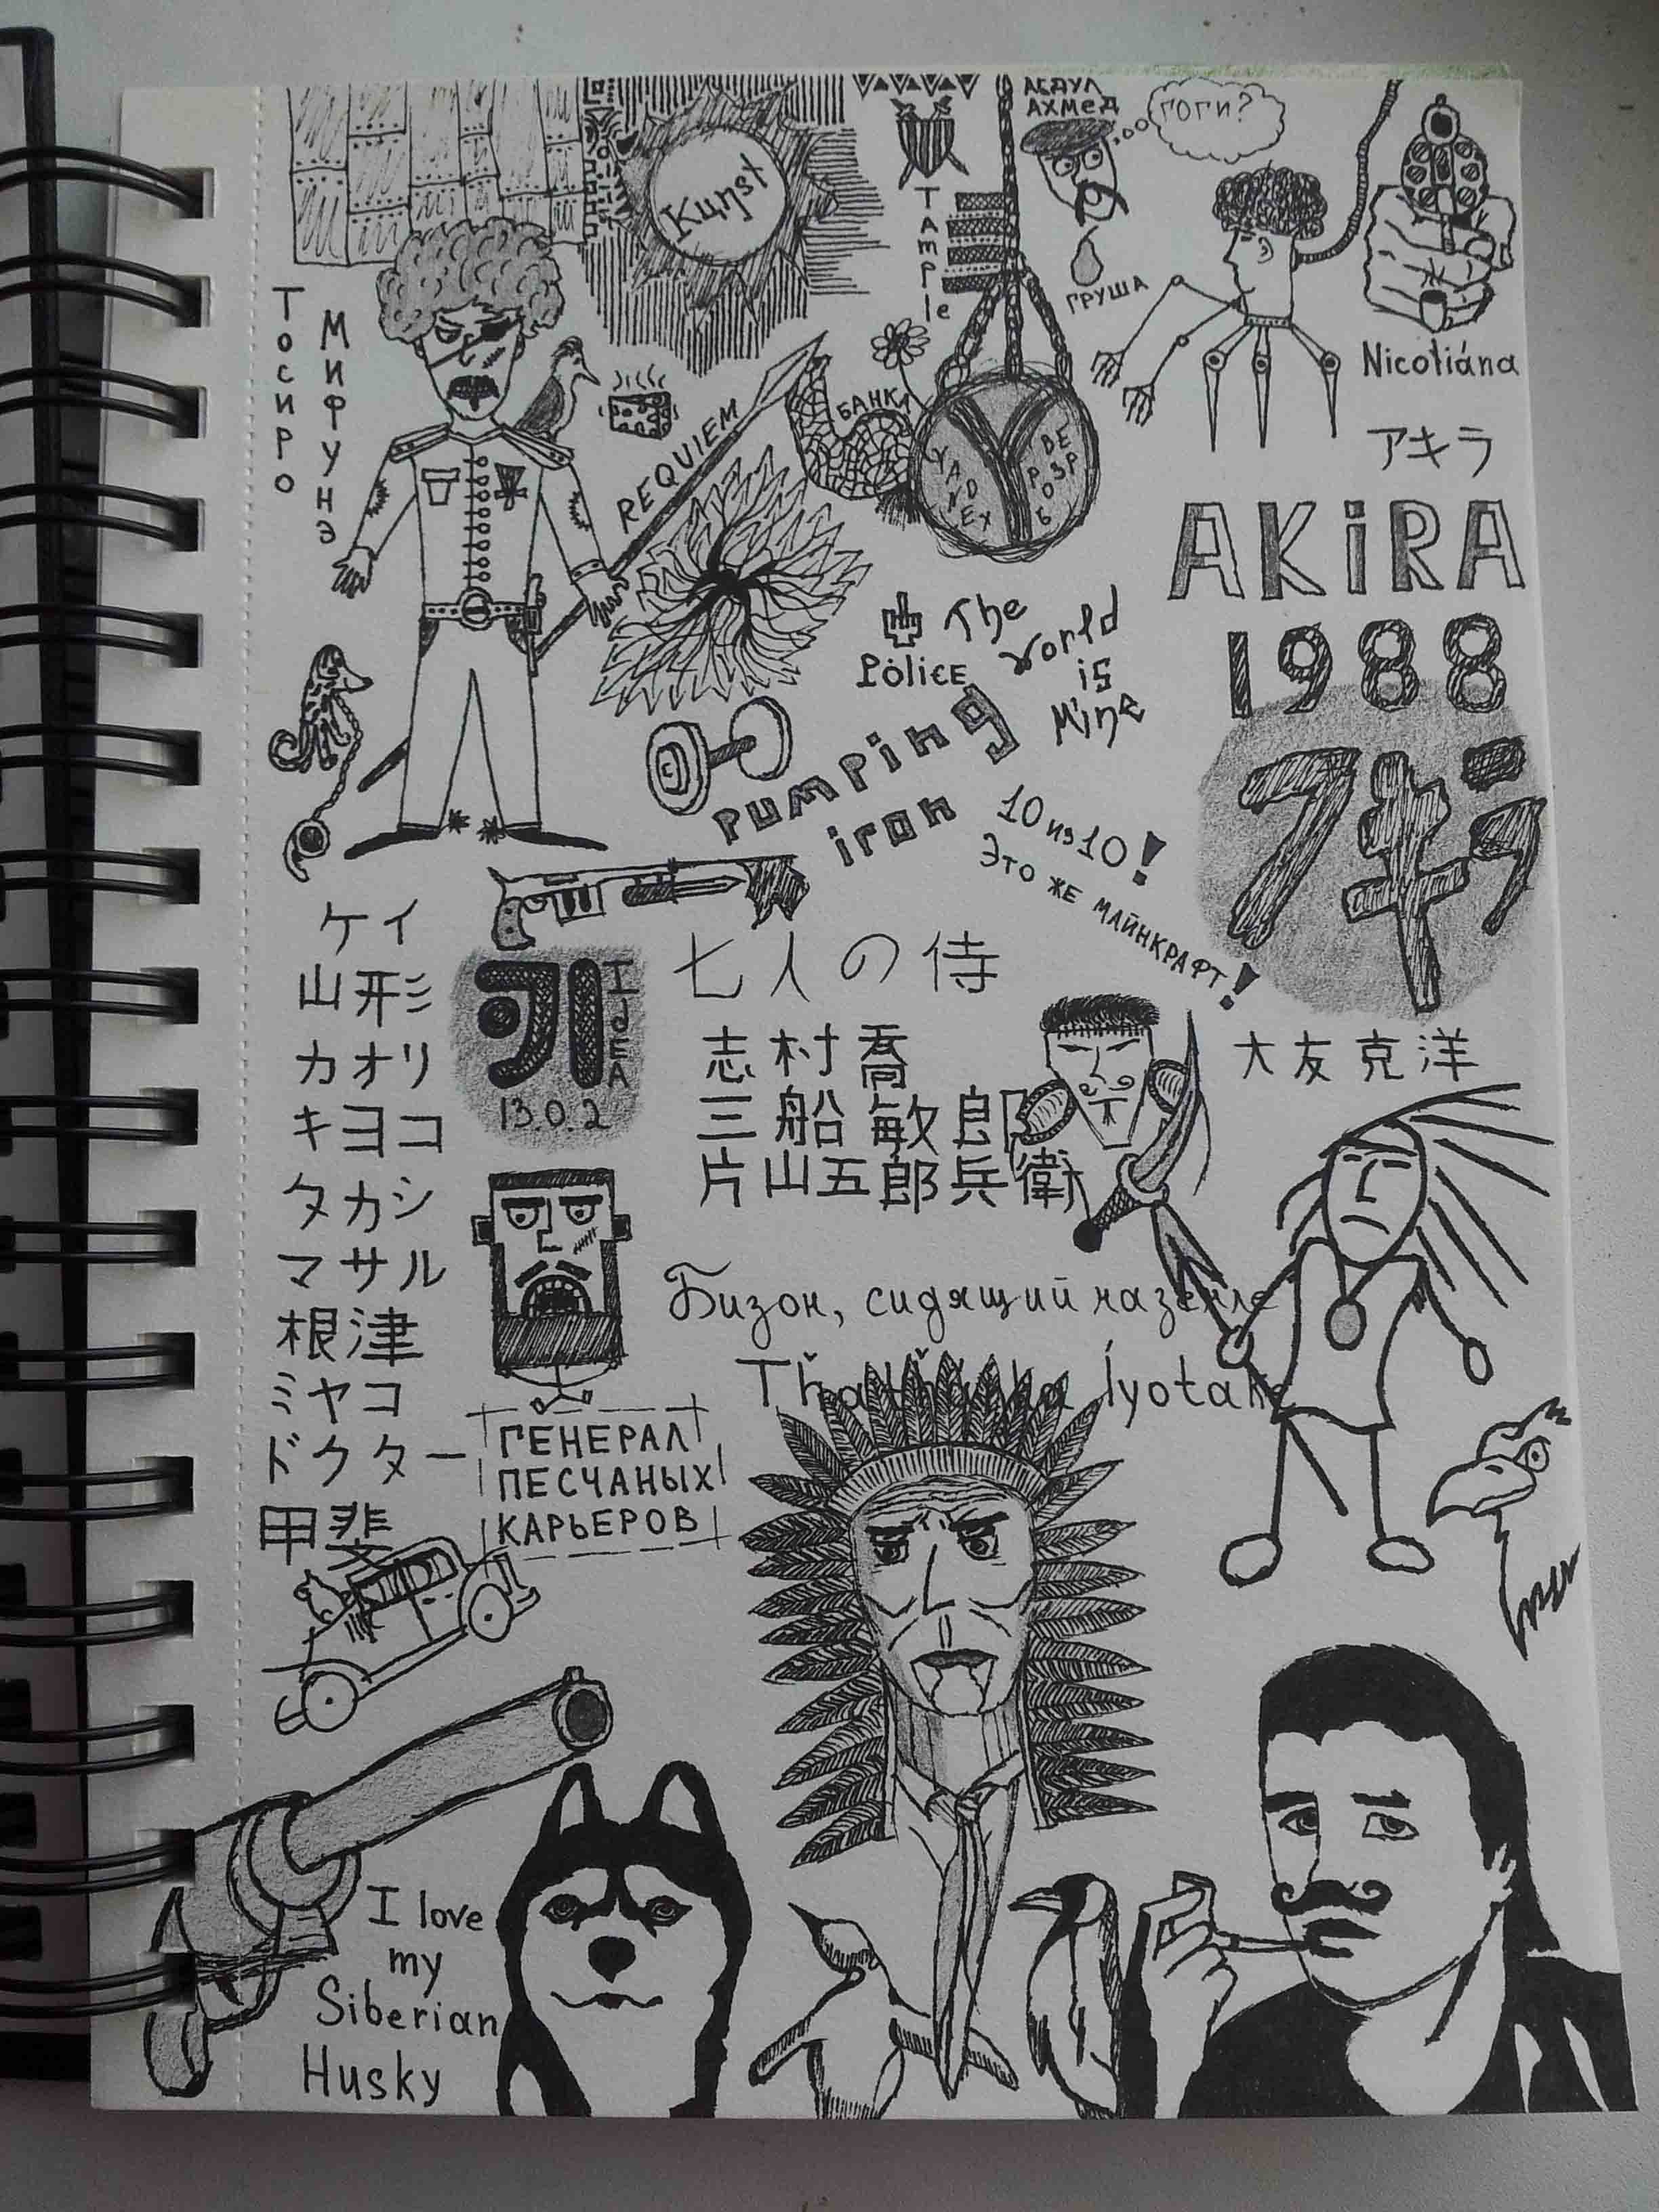 Kunst
Tample
АБДУЛ
АХМЕД
ГОГИ?
ГРУША
Nicotiána
Тосиро
Мифунэ
REQUIEM
БАНКА
YANDEX
アキラ
AKiRA
1988
アキラ
大友克洋
Police
The
world
is
Mine
PUMPing
iron
10 из 10!
Это же майнкрафт!
ケイ
山形
カオリ
キヨコ
タカシ
マサル
根津
ミヤコ
ドクター
甲斐
IdEA
13.0.2
七人の侍
志村喬
三船敏郎
片山五郎兵衛
Бизон, сидящий на земле
Tȟatȟáŋka Íyotake
ГЕНЕРАЛ
ПЕСЧАНЫХ
КАРЬЕРОВ
I love
my
Siberian
Husky